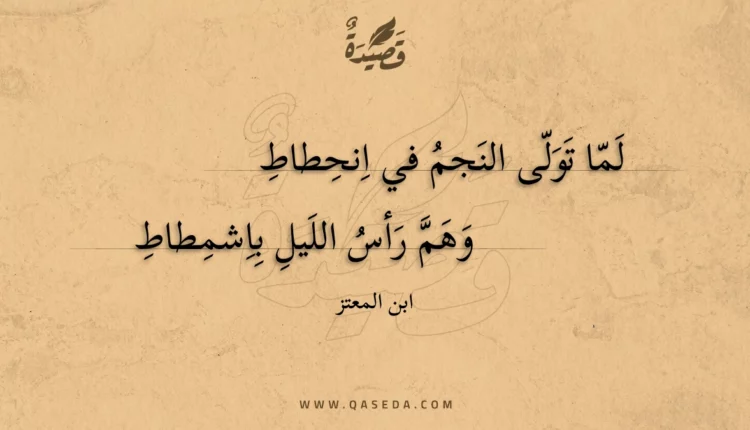 قَصِيدَةٌ
لَمّا تَوَلّى النَجمُ في اِنحِطاطِ
وَهَمَّ رَأسُ اللَيلِ بِاِشمِطاطِ
ابن المعتز
WWW.QASEDA.COM